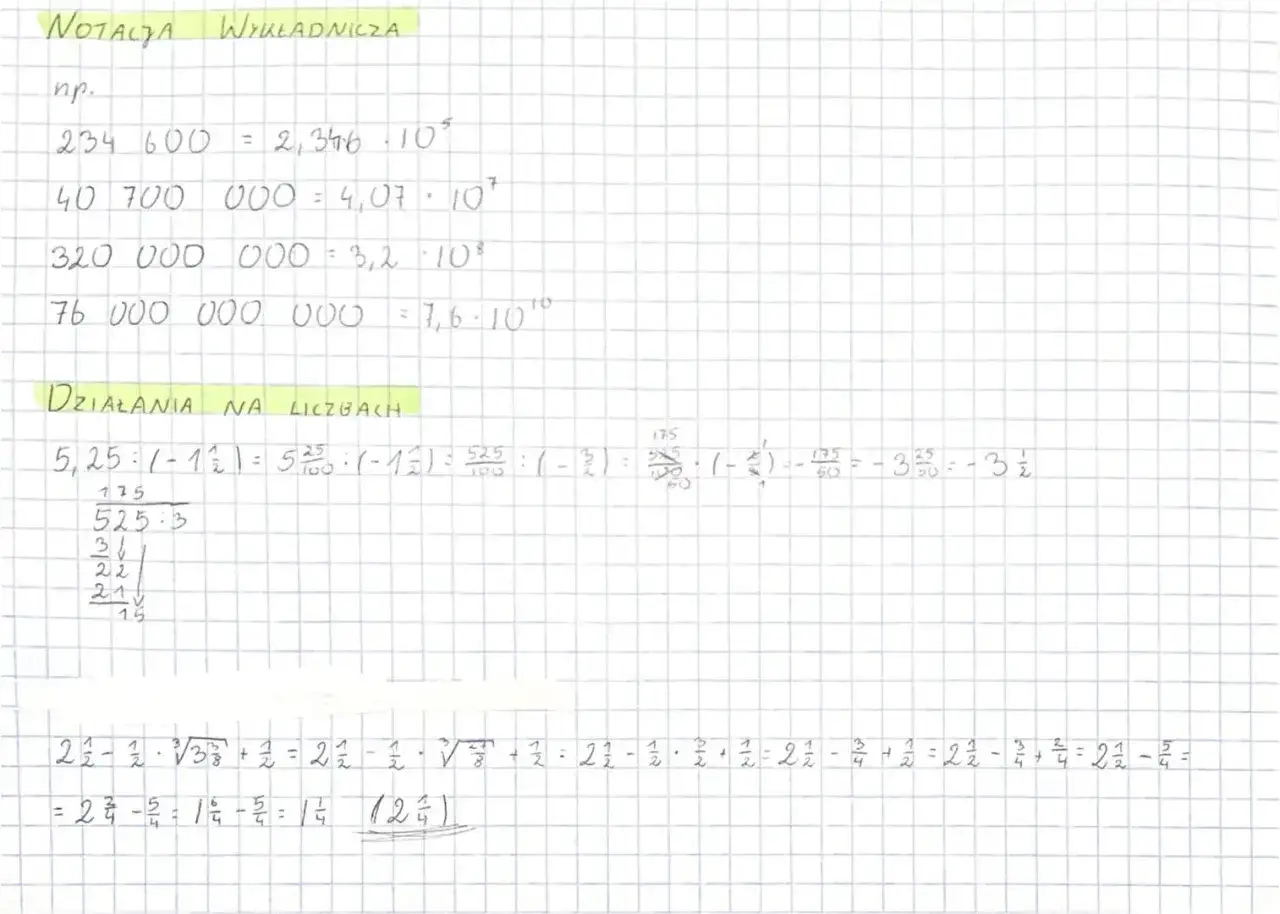 NOTACJA WYKŁADNICZA
np.
234 600 = 2,346 · 10⁵
40 700 000 = 4,07 · 10⁷
320 000 000 = 3,2 · 10⁸
76 000 000 000 = 7,6 · 10¹⁰
DZIAŁANIA NA LICZBACH
5,25 : (-1 1/2) = 5 25/100 : (-1 1/2) = 525/100 : (-3/2) = 525/100 · (-2/3) = -175/50 = -3 25/50 = -3 1/2
175
525 : 3
3
22
21
15
2 1/2 - 1/2 · ∛(3 3/8) + 1/2 = 2 1/2 - 1/2 · ∛(27/8) + 1/2 = 2 1/2 - 1/2 · 3/2 + 1/2 = 2 1/2 - 3/4 + 1/2 = 2 1/2 - 3/4 + 2/4 = 2 1/2 - 5/4 =
= 2 2/4 - 5/4 = 1 6/4 - 5/4 = 1 1/4 (2 1/4)